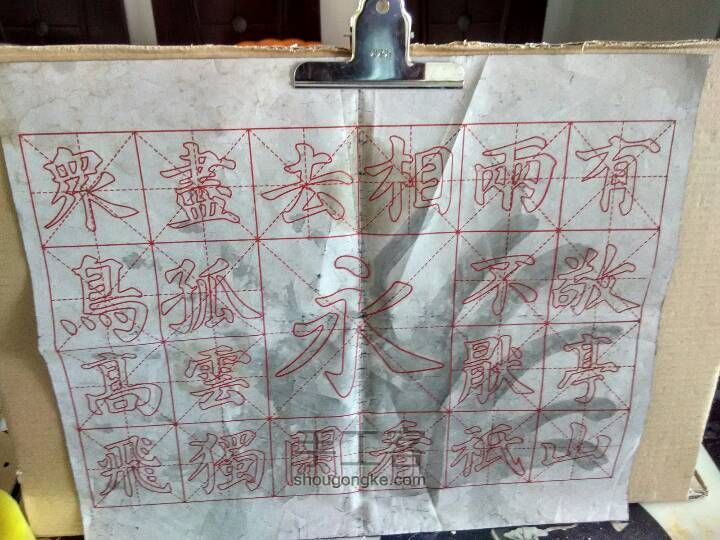 衆鳥高飛
盡孤雲獨
去閑
永
相看
兩不猒祇
有敬亭山
shougongke.com